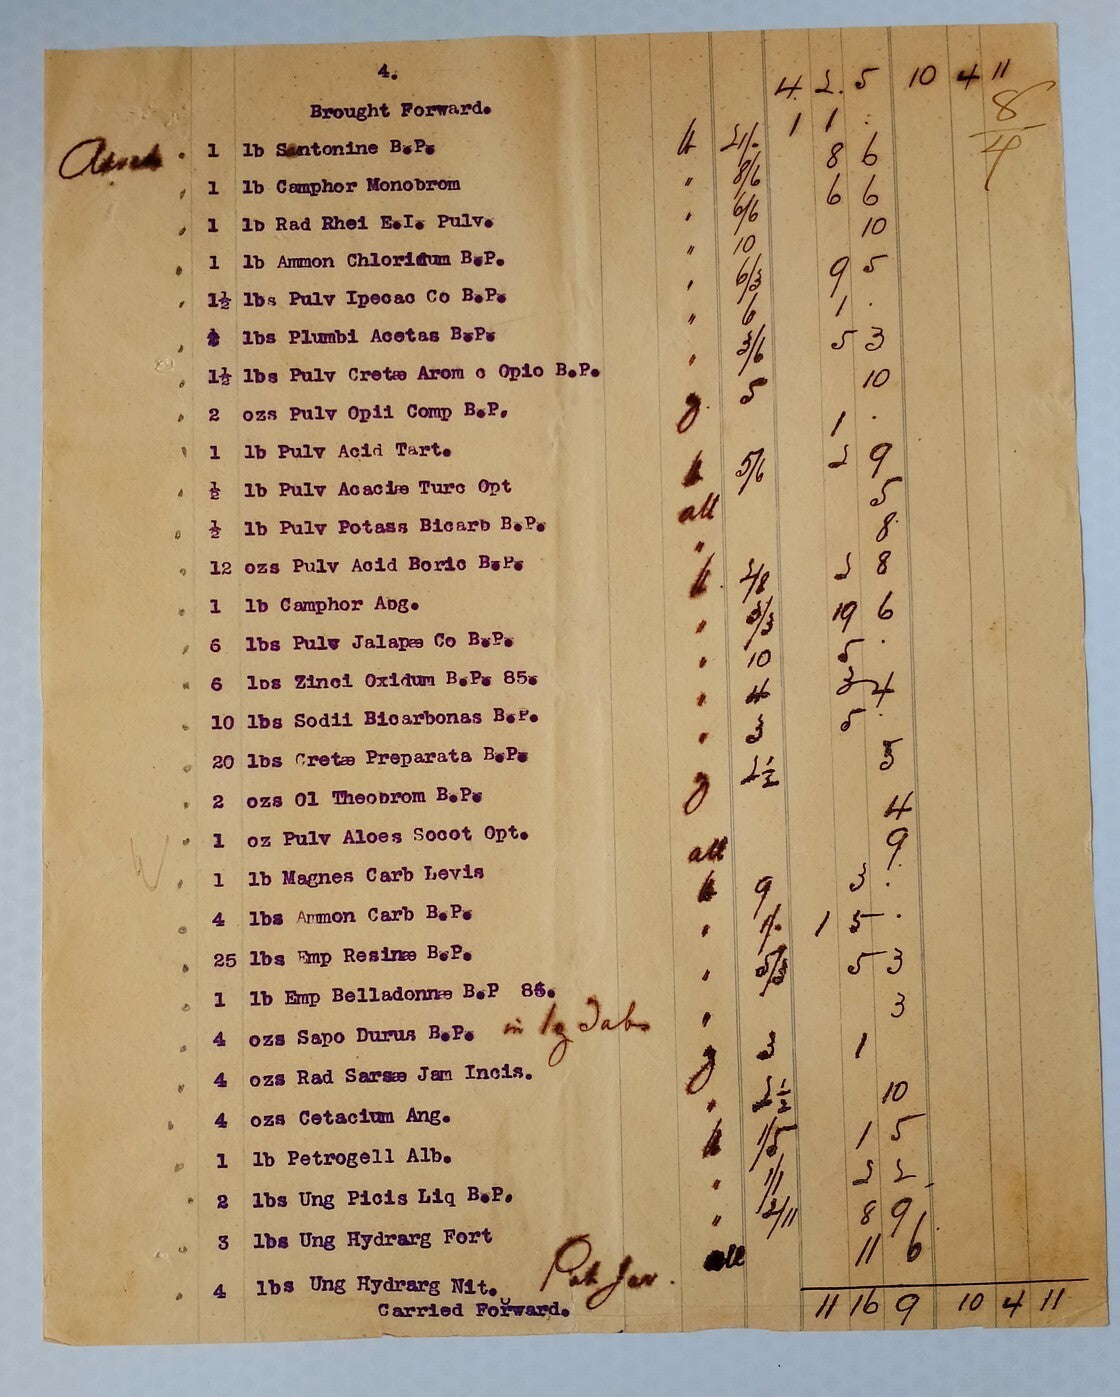 4.
Brought Forward. 4. 2. 5 10 4 11
8/4
1 lb Santonine B.P. lb 21/- 1 1 .
1 lb Camphor Monobrom " 8/6 8 6
1 lb Rad Rhei E.I. Pulv. " 6/6 6 6
1 lb Ammon Chloridum B.P. " 10 10
1½ lbs Pulv Ipecac Co B.P. " 6/3 9 5
lbs Plumbi Acetas B.P. " 6 1 .
1½ lbs Pulv Cretæ Arom c Opio B.P. " 3/6 5 3
2 ozs Pulv Opii Comp B.P. 5 10
1 lb Pulv Acid Tart. 1 .
½ lb Pulv Acaciæ Turc Opt lb 5/6 2 9
½ lb Pulv Potass Bicarb B.P. all 5
12 ozs Pulv Acid Boric B.P. " 8
1 lb Camphor Ang. lb 2/8 2 8
6 lbs Pulv Jalapæ Co B.P. " 3/3 19 6
6 lbs Zinci Oxidum B.P. 85. " 10 5 .
10 lbs Sodii Bicarbonas B.P. " 4 3 4
20 lbs Cretæ Preparata B.P. " 3 5 .
2 ozs Ol Theobrom B.P. 2½ 5
1 oz Pulv Aloes Socot Opt. 4
1 lb Magnes Carb Levis all 9
4 lbs Ammon Carb B.P. lb 9 3 .
25 lbs Emp Resinæ B.P. " 1/- 1 5 .
1 lb Emp Belladonnæ B.P 85. " 5/3 5 3
4 ozs Sapo Durus B.P. in Tabs " 3
4 ozs Rad Sarsæ Jam Incis. 3 1
4 ozs Cetacium Ang. " 2½ 10
1 lb Petrogell Alb. lb 1/5 1 5
2 lbs Ung Picis Liq B.P. " 1/1 2 2
3 lbs Ung Hydrarg Fort " 2/11 8 9
4 lbs Ung Hydrarg Nit. Pot Jar. all 11 6
Carried Forward. 11 16 9 10 4 11